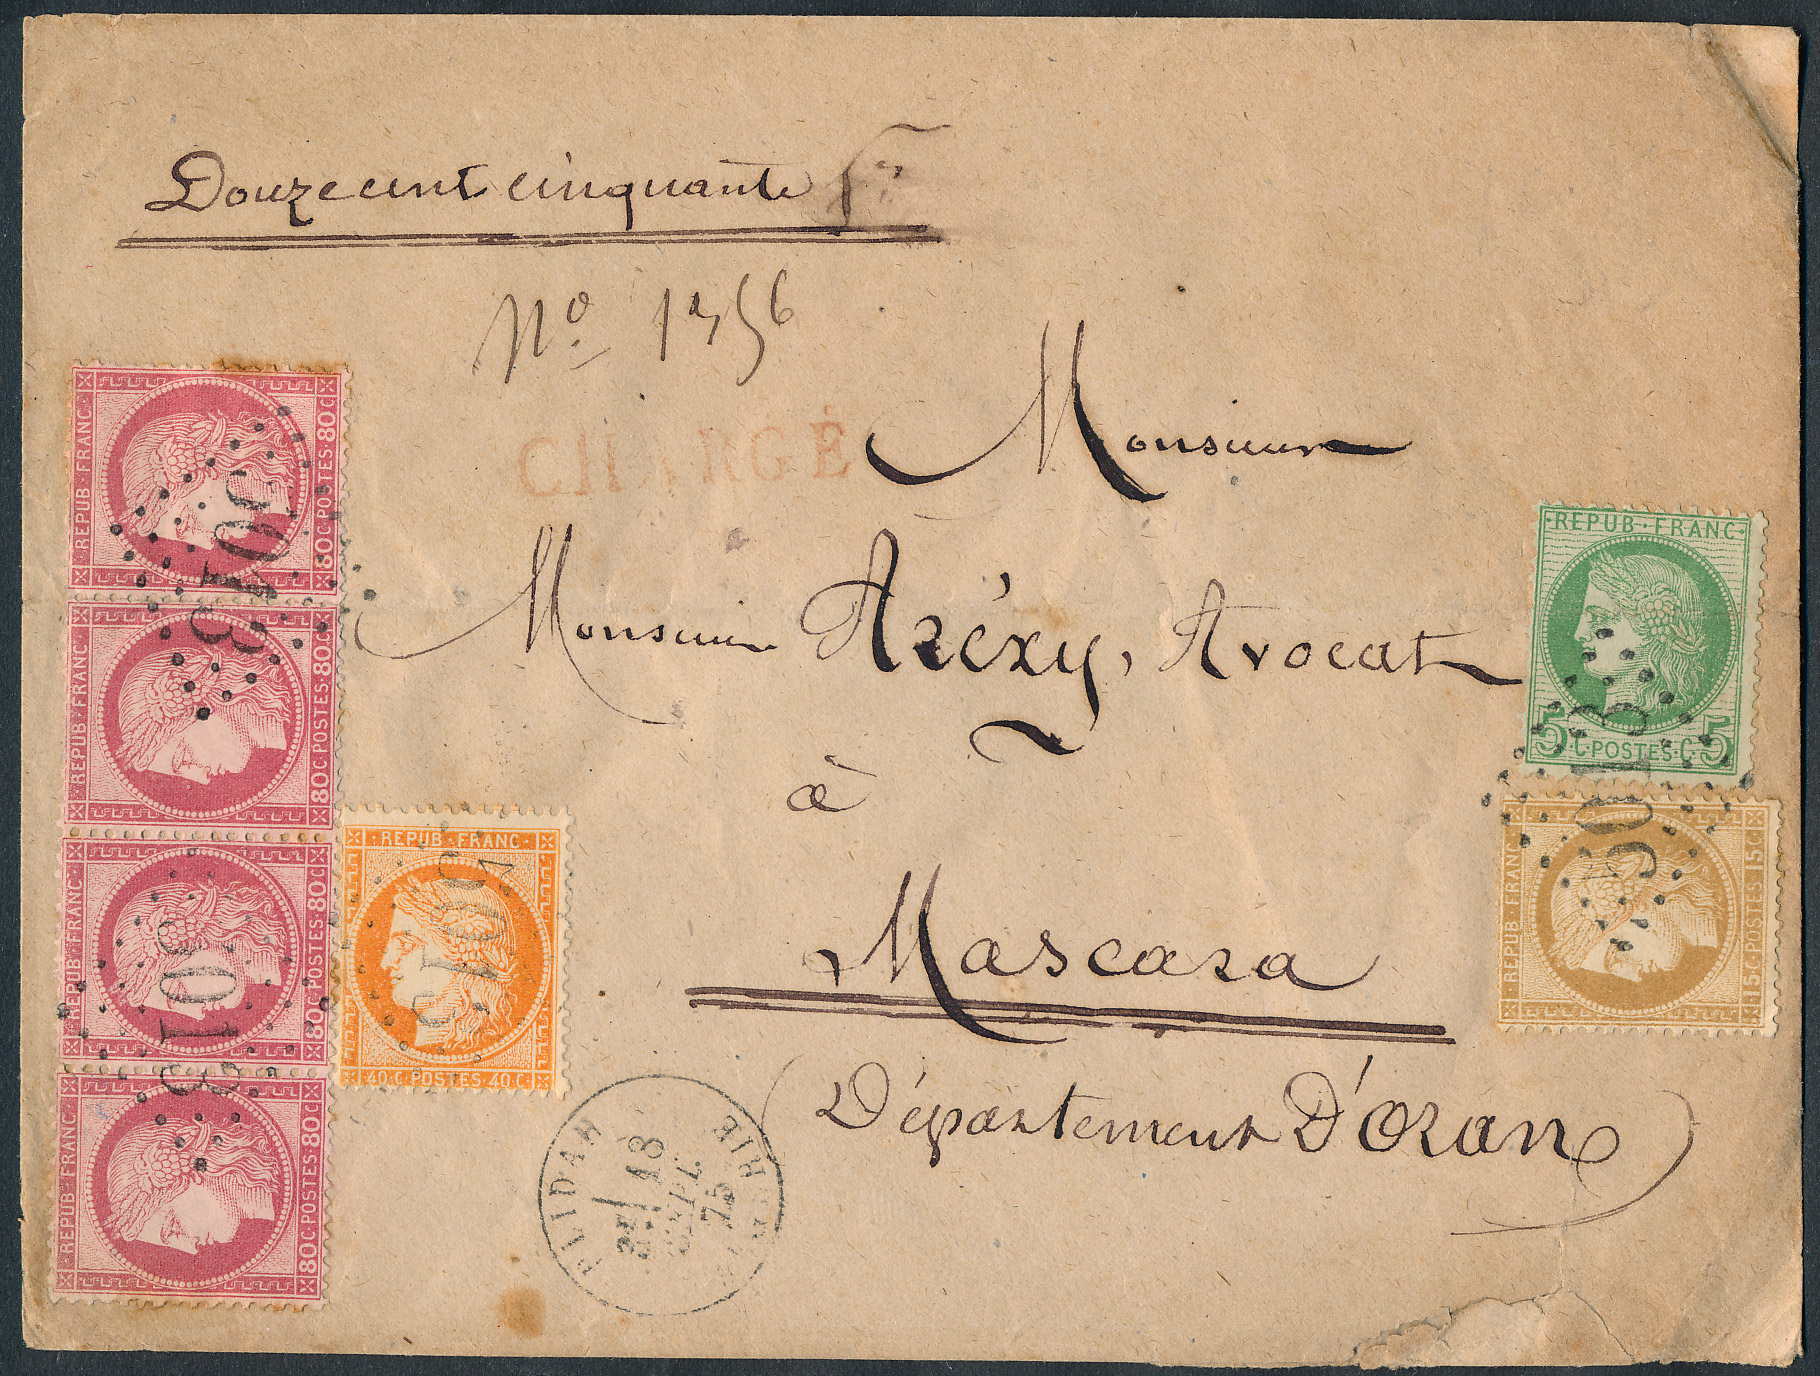 Douze cent cinquante f
Nº 1356
CHARGÉ
Monsieur
Monsieur Azéxy, Avocat
à
Mascara
(Département D'Oran)
REPUB FRANC
80C POSTES 80C
5018
REPUB FRANC
80C POSTES 80C
REPUB FRANC
80C POSTES 80C
5018
REPUB FRANC
80C POSTES 80C
REPUB FRANC
40 C POSTES 40 C
REPUB FRANC
5 C POSTES C 5
5018
REPUB FRANC
15 C POSTES 15 C
BLIDAH
18
SEPT.
75